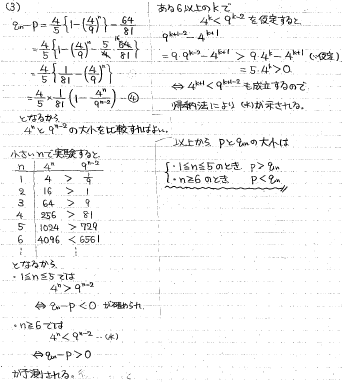 (3)
q_n - p = 4/5 {1-(4/9)^n} - 64/81
= 4/5 {1-(4/9)^n - 5/4 · 64/81}
= 4/5 {1/81 - (4/9)^n}
= 4/5 × 1/81 (1 - 4^n/9^{n-2}) -④
となるから
4^n と 9^{n-2} の大小を比較すればよい。
小さいnで実験すると
n | 4^n 9^{n-2}
1 | 4 > 1/9
2 | 16 > 1
3 | 64 > 9
4 | 256 > 81
5 | 1024 > 729
6 | 4096 < 6561
⋮ ⋮
となるから
・1≤n≤5 では
4^n > 9^{n-2}
⇔ q_n - p < 0 が確められ
・n≥6 では
4^n < 9^{n-2} …(*)
⇔ q_n - p > 0
が予測される。
ある6以上のkで
4^k < 9^{k-2} を仮定すると
9^{k-1} - 4^{k+1}
= 9·9^{k-2} - 4^{k+1} > 9·4^k - 4^{k+1} (∵仮定)
= 5·4^k > 0
⇔ 4^{k+1} < 9^{k-1} も成立するので
帰納法により (*)が示される。
以上から pとq_nの大小は
{ ・1≤n≤5のとき p > q_n
・n≥6 のとき p < q_n